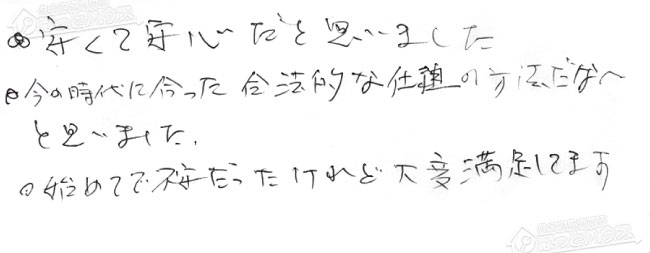 ◎安くて安心だと思いました
◎今の時代に合った合法的な仕組の方法だなへ
と思いました.
○始めてで不安だったけれど大変満足してます